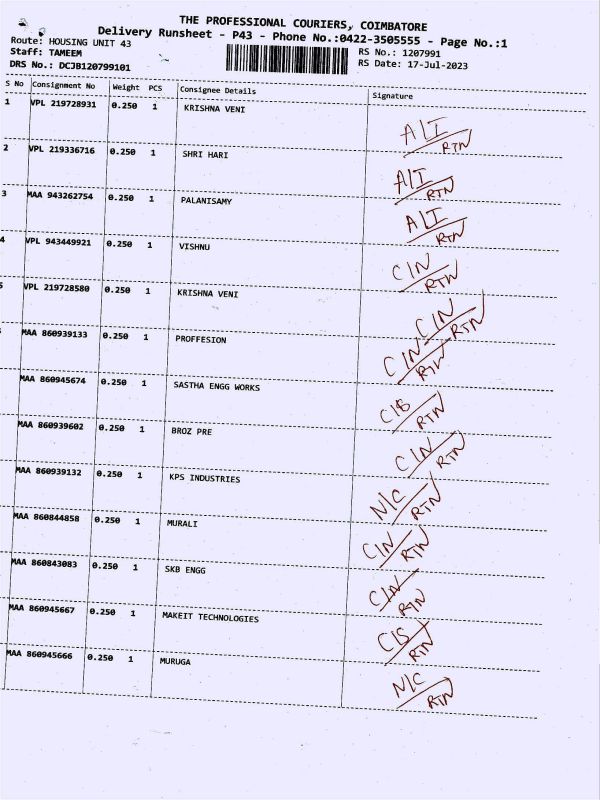 THE PROFESSIONAL COURIERS, COIMBATORE
Delivery Runsheet - P43 - Phone No.:0422-3505555 - Page No.:1
Route: HOUSING UNIT 43
Staff: TAMEEM
DRS No.: DCJB120799101
RS No.: 1207991
RS Date: 17-Jul-2023
S No Consignment No Weight PCS Consignee Details Signature
1 VPL 219728931 0.250 1 KRISHNA VENI A/I RTN
2 VPL 219336716 0.250 1 SHRI HARI A/I RTN
3 MAA 943262754 0.250 1 PALANISAMY A/I RTN
4 VPL 943449921 0.250 1 VISHNU C/N RTN
5 VPL 219728580 0.250 1 KRISHNA VENI C/N RTN
MAA 860939133 0.250 1 PROFFESION C/N RTN
MAA 860945674 0.250 1 SASTHA ENGG WORKS RTN
MAA 860939602 0.250 1 BROZ PRE C/N RTN
MAA 860939132 0.250 1 KPS INDUSTRIES N/C RTN
MAA 860844858 0.250 1 MURALI C/N RTN
MAA 860843083 0.250 1 SKB ENGG C/N RTN
MAA 860945667 0.250 1 MAKEIT TECHNOLOGIES C/S RTN
MAA 860945666 0.250 1 MURUGA N/C RTN